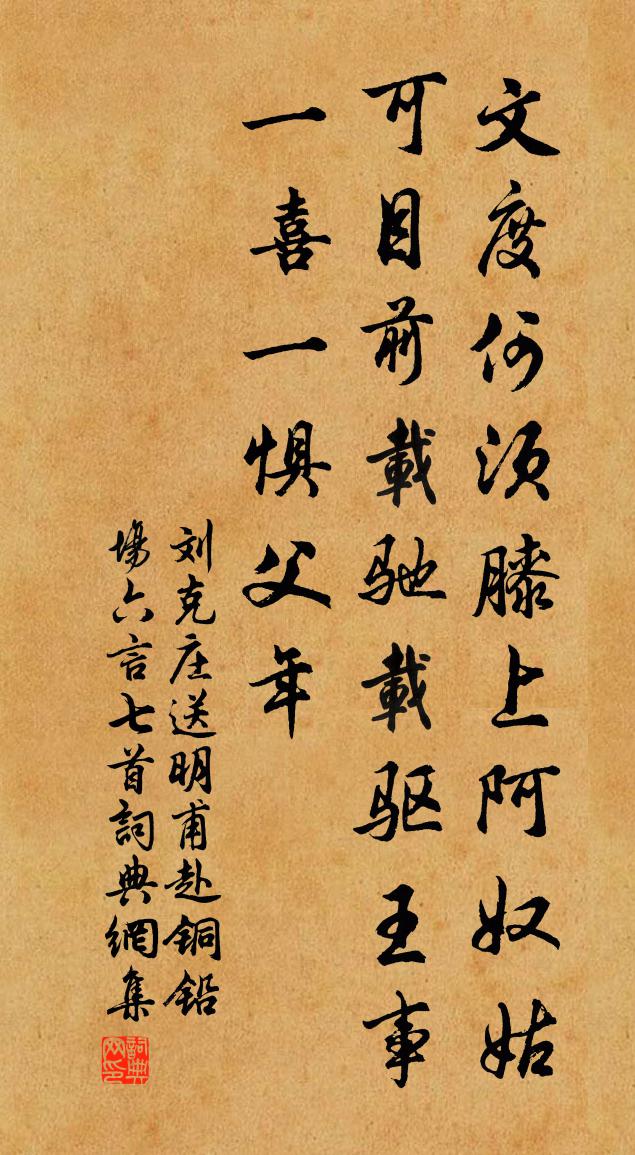 文度何须膝上阿奴姑
可目前載驰載驱王事
一喜一惧父年
刘克庄送明甫赴铜铅
場六言七首詞典網集
詞典网印